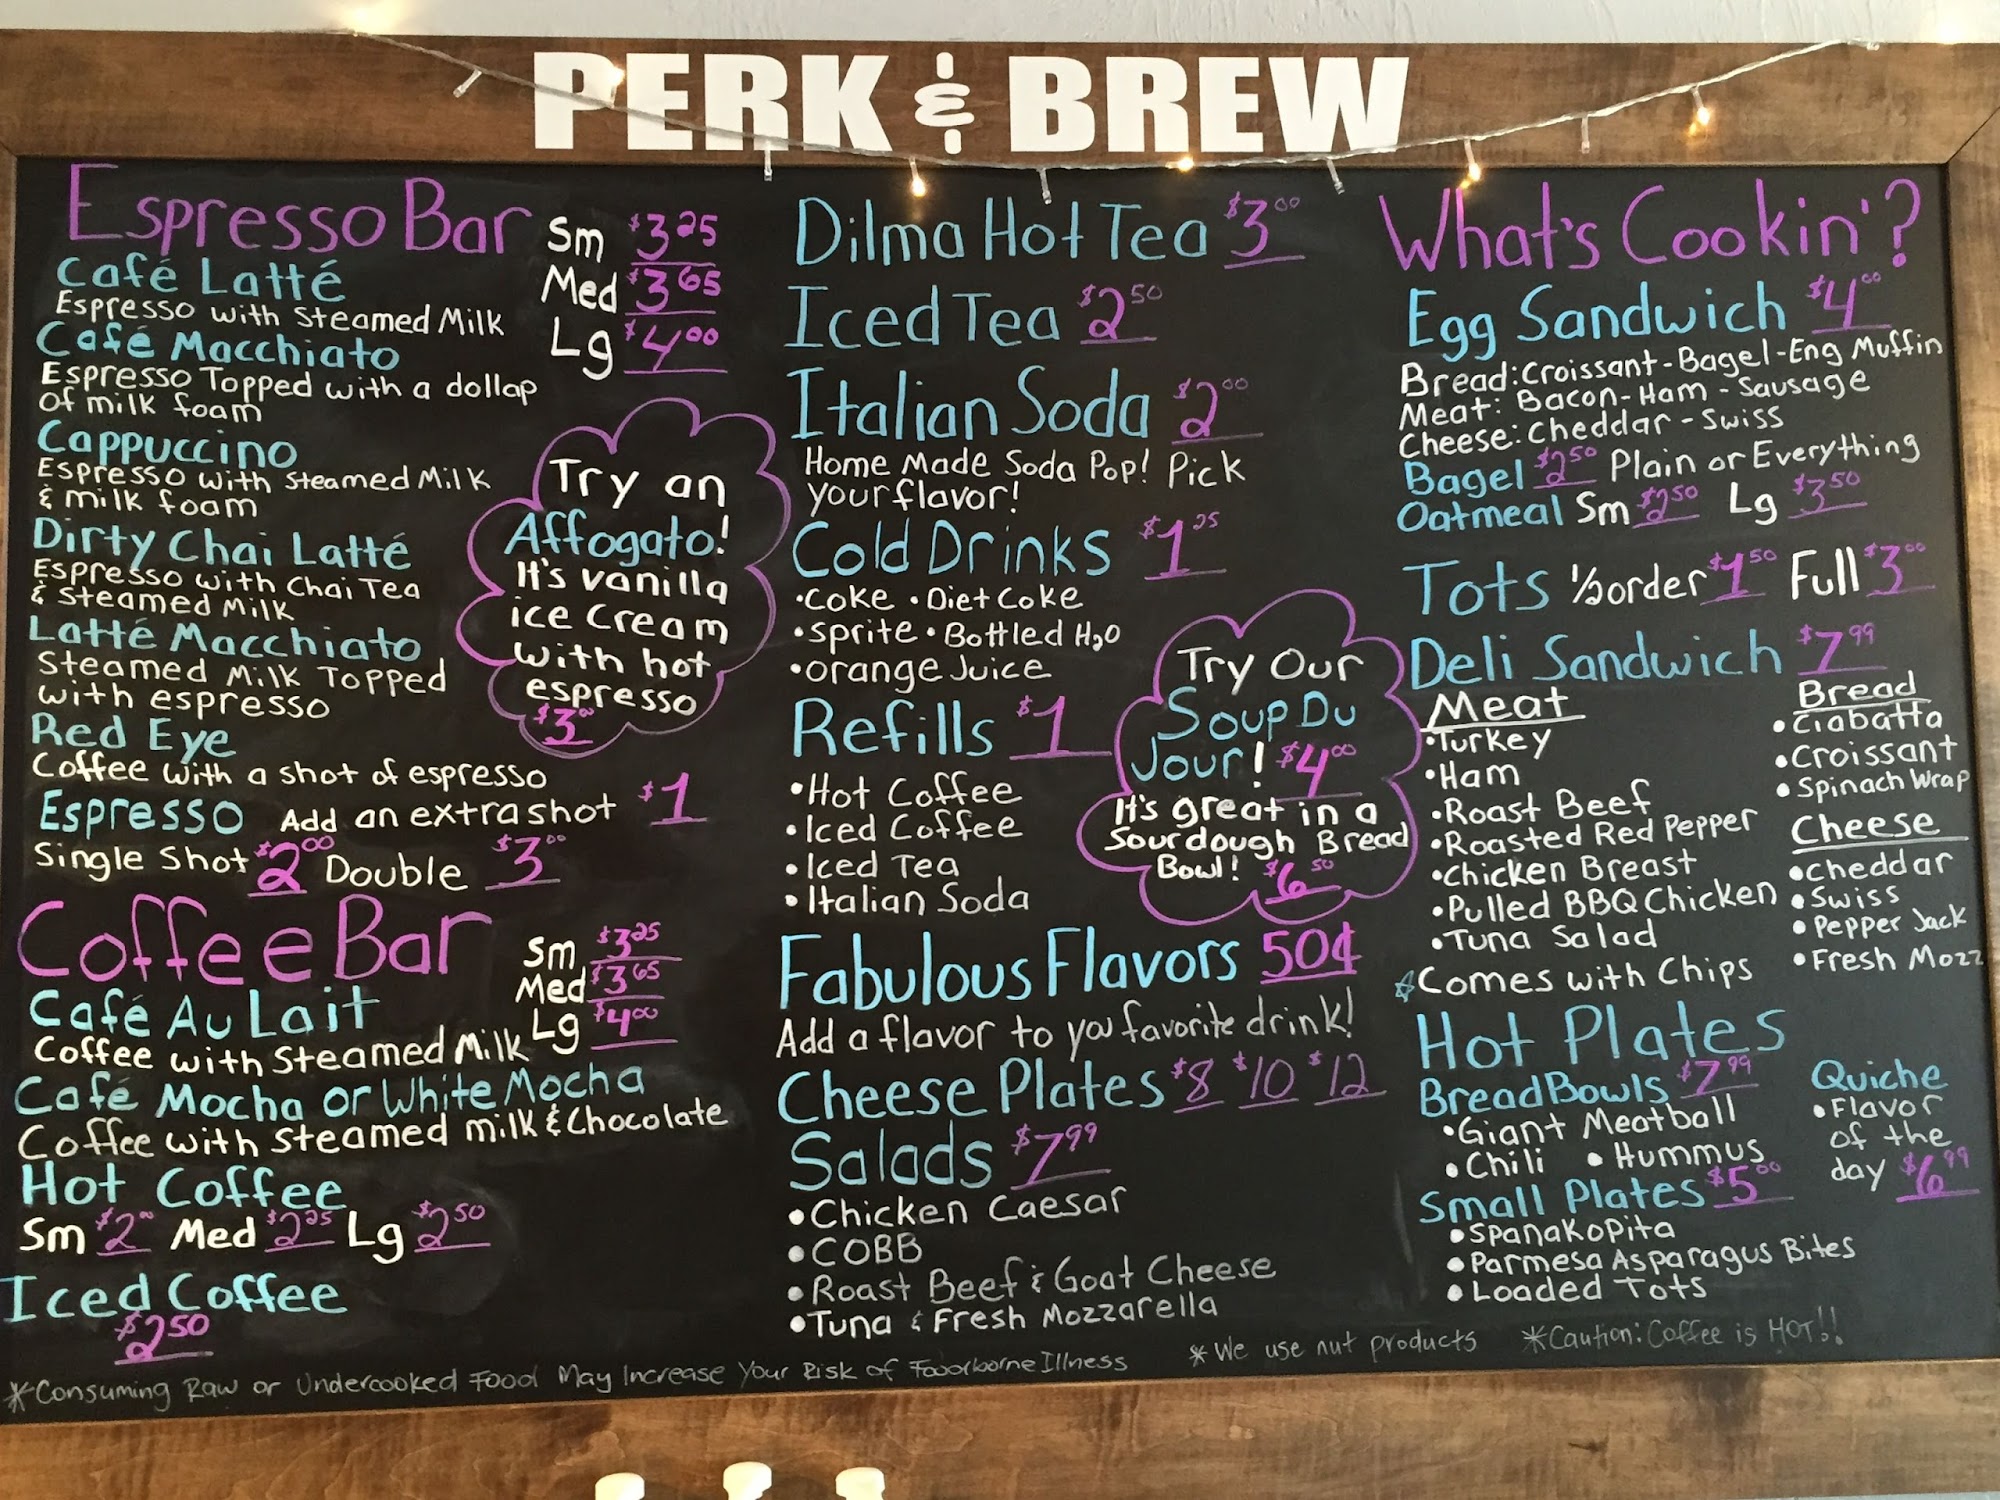 PERK & BREW
Espresso Bar
Sm $3.25
Med $3.65
Lg $4.00
Café Latté
Espresso with Steamed Milk
Café Macchiato
Espresso Topped with a dollap
of milk foam
Cappuccino
Espresso with Steamed Milk
& milk foam
Dirty Chai Latté
Espresso with Chai Tea
& Steamed Milk
Latté Macchiato
Steamed Milk Topped
with espresso
Red Eye
Coffee with a shot of espresso
Espresso Add an extra shot $1
Single Shot $2.00 Double $3.00
Try an
Affogato!
It's vanilla
ice cream
with hot
espresso
$3.00
Coffee Bar
Sm $3.25
Med $3.65
Lg $4.00
Café Au Lait
Coffee with Steamed Milk
Café Mocha or White Mocha
Coffee with Steamed milk & Chocolate
Hot Coffee
Sm $2.00 Med $2.25 Lg $2.50
Iced Coffee
$2.50
Dilma Hot Tea $3.00
Iced Tea $2.50
Italian Soda $2.00
Home Made Soda Pop! Pick
your flavor!
Cold Drinks $1.25
•Coke •Diet Coke
•Sprite •Bottled H2O
•Orange Juice
Refills $1
•Hot Coffee
•Iced Coffee
•Iced Tea
•Italian Soda
Try Our
Soup Du
Jour! $4.00
It's great in a
Sourdough Bread
Bowl! $6.50
Fabulous Flavors 50¢
Add a flavor to you favorite drink!
Cheese Plates $8 $10 $12
Salads $7.99
•Chicken Caesar
•COBB
•Roast Beef & Goat Cheese
•Tuna & Fresh Mozzarella
What's Cookin'?
Egg Sandwich $4.00
Bread: Croissant-Bagel-Eng Muffin
Meat: Bacon-Ham-Sausage
Cheese: Cheddar-Swiss
Bagel $2.50 Plain or Everything
Oatmeal Sm $2.50 Lg $3.50
Tots 1/2 order $1.50 Full $3.00
Deli Sandwich $7.99
Meat
•Turkey
•Ham
•Roast Beef
•Roasted Red Pepper
•Chicken Breast
•Pulled BBQ Chicken
•Tuna Salad
☆Comes with Chips
Bread
•Ciabatta
•Croissant
•Spinach Wrap
Cheese
•Cheddar
•Swiss
•Pepper Jack
•Fresh Mozz
Hot Plates
Bread Bowls $7.99
•Giant Meatball
•Chili •Hummus
Small Plates $5.00
•Spanakopita
•Parmesa Asparagus Bites
•Loaded Tots
Quiche
•Flavor
of the
day $6.99
*Consuming Raw or Undercooked Food May Increase Your Risk of Foodborne Illness
*We use nut products
*Caution: Coffee is HOT!!